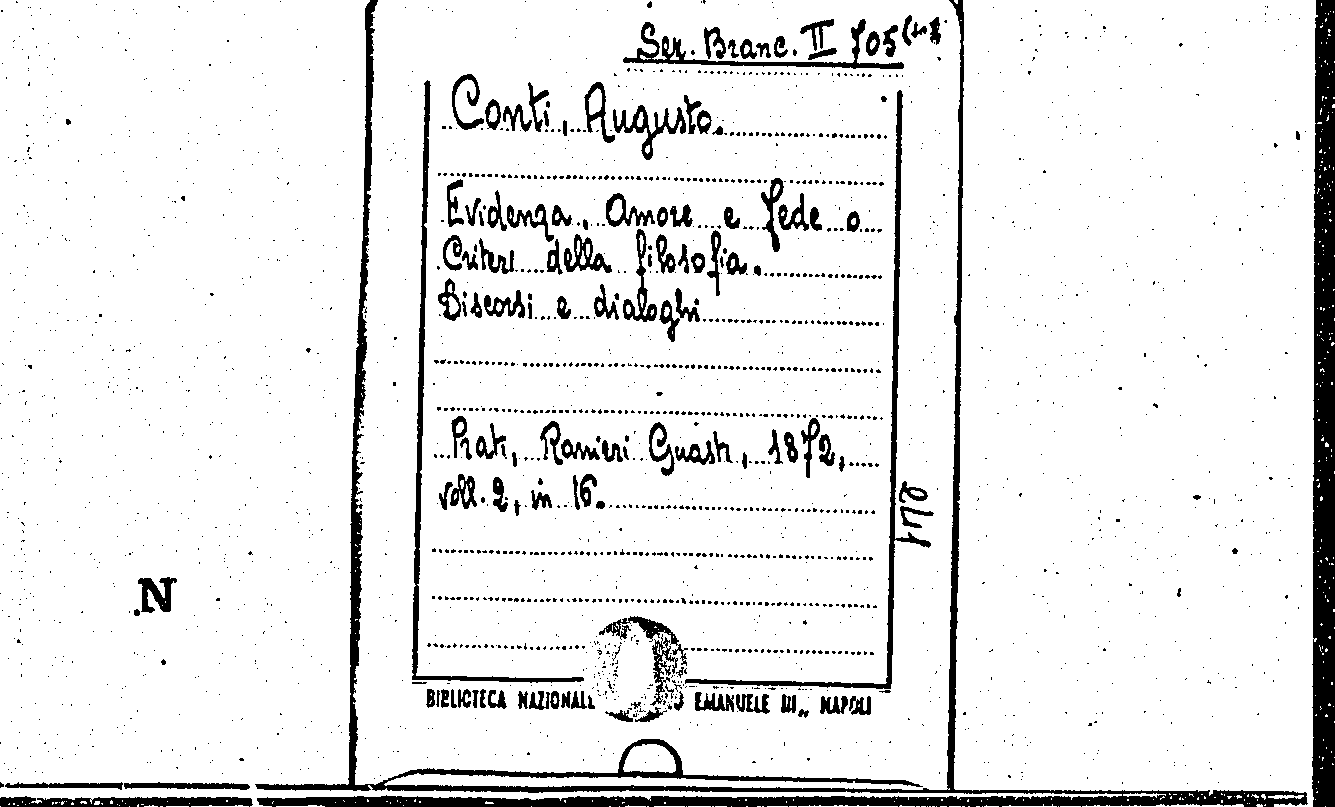 Ser. Branc. II 705
Conti, Augusto.
Evidenza, Amore e fede o
Criteri della filosofia.
Discorsi e dialoghi
Prati, Ranieri Guasti, 1872,
voll. 2, in 16.
N
BIBLIOTECA NAZIONALE EMANUELE III„ NAPOLI